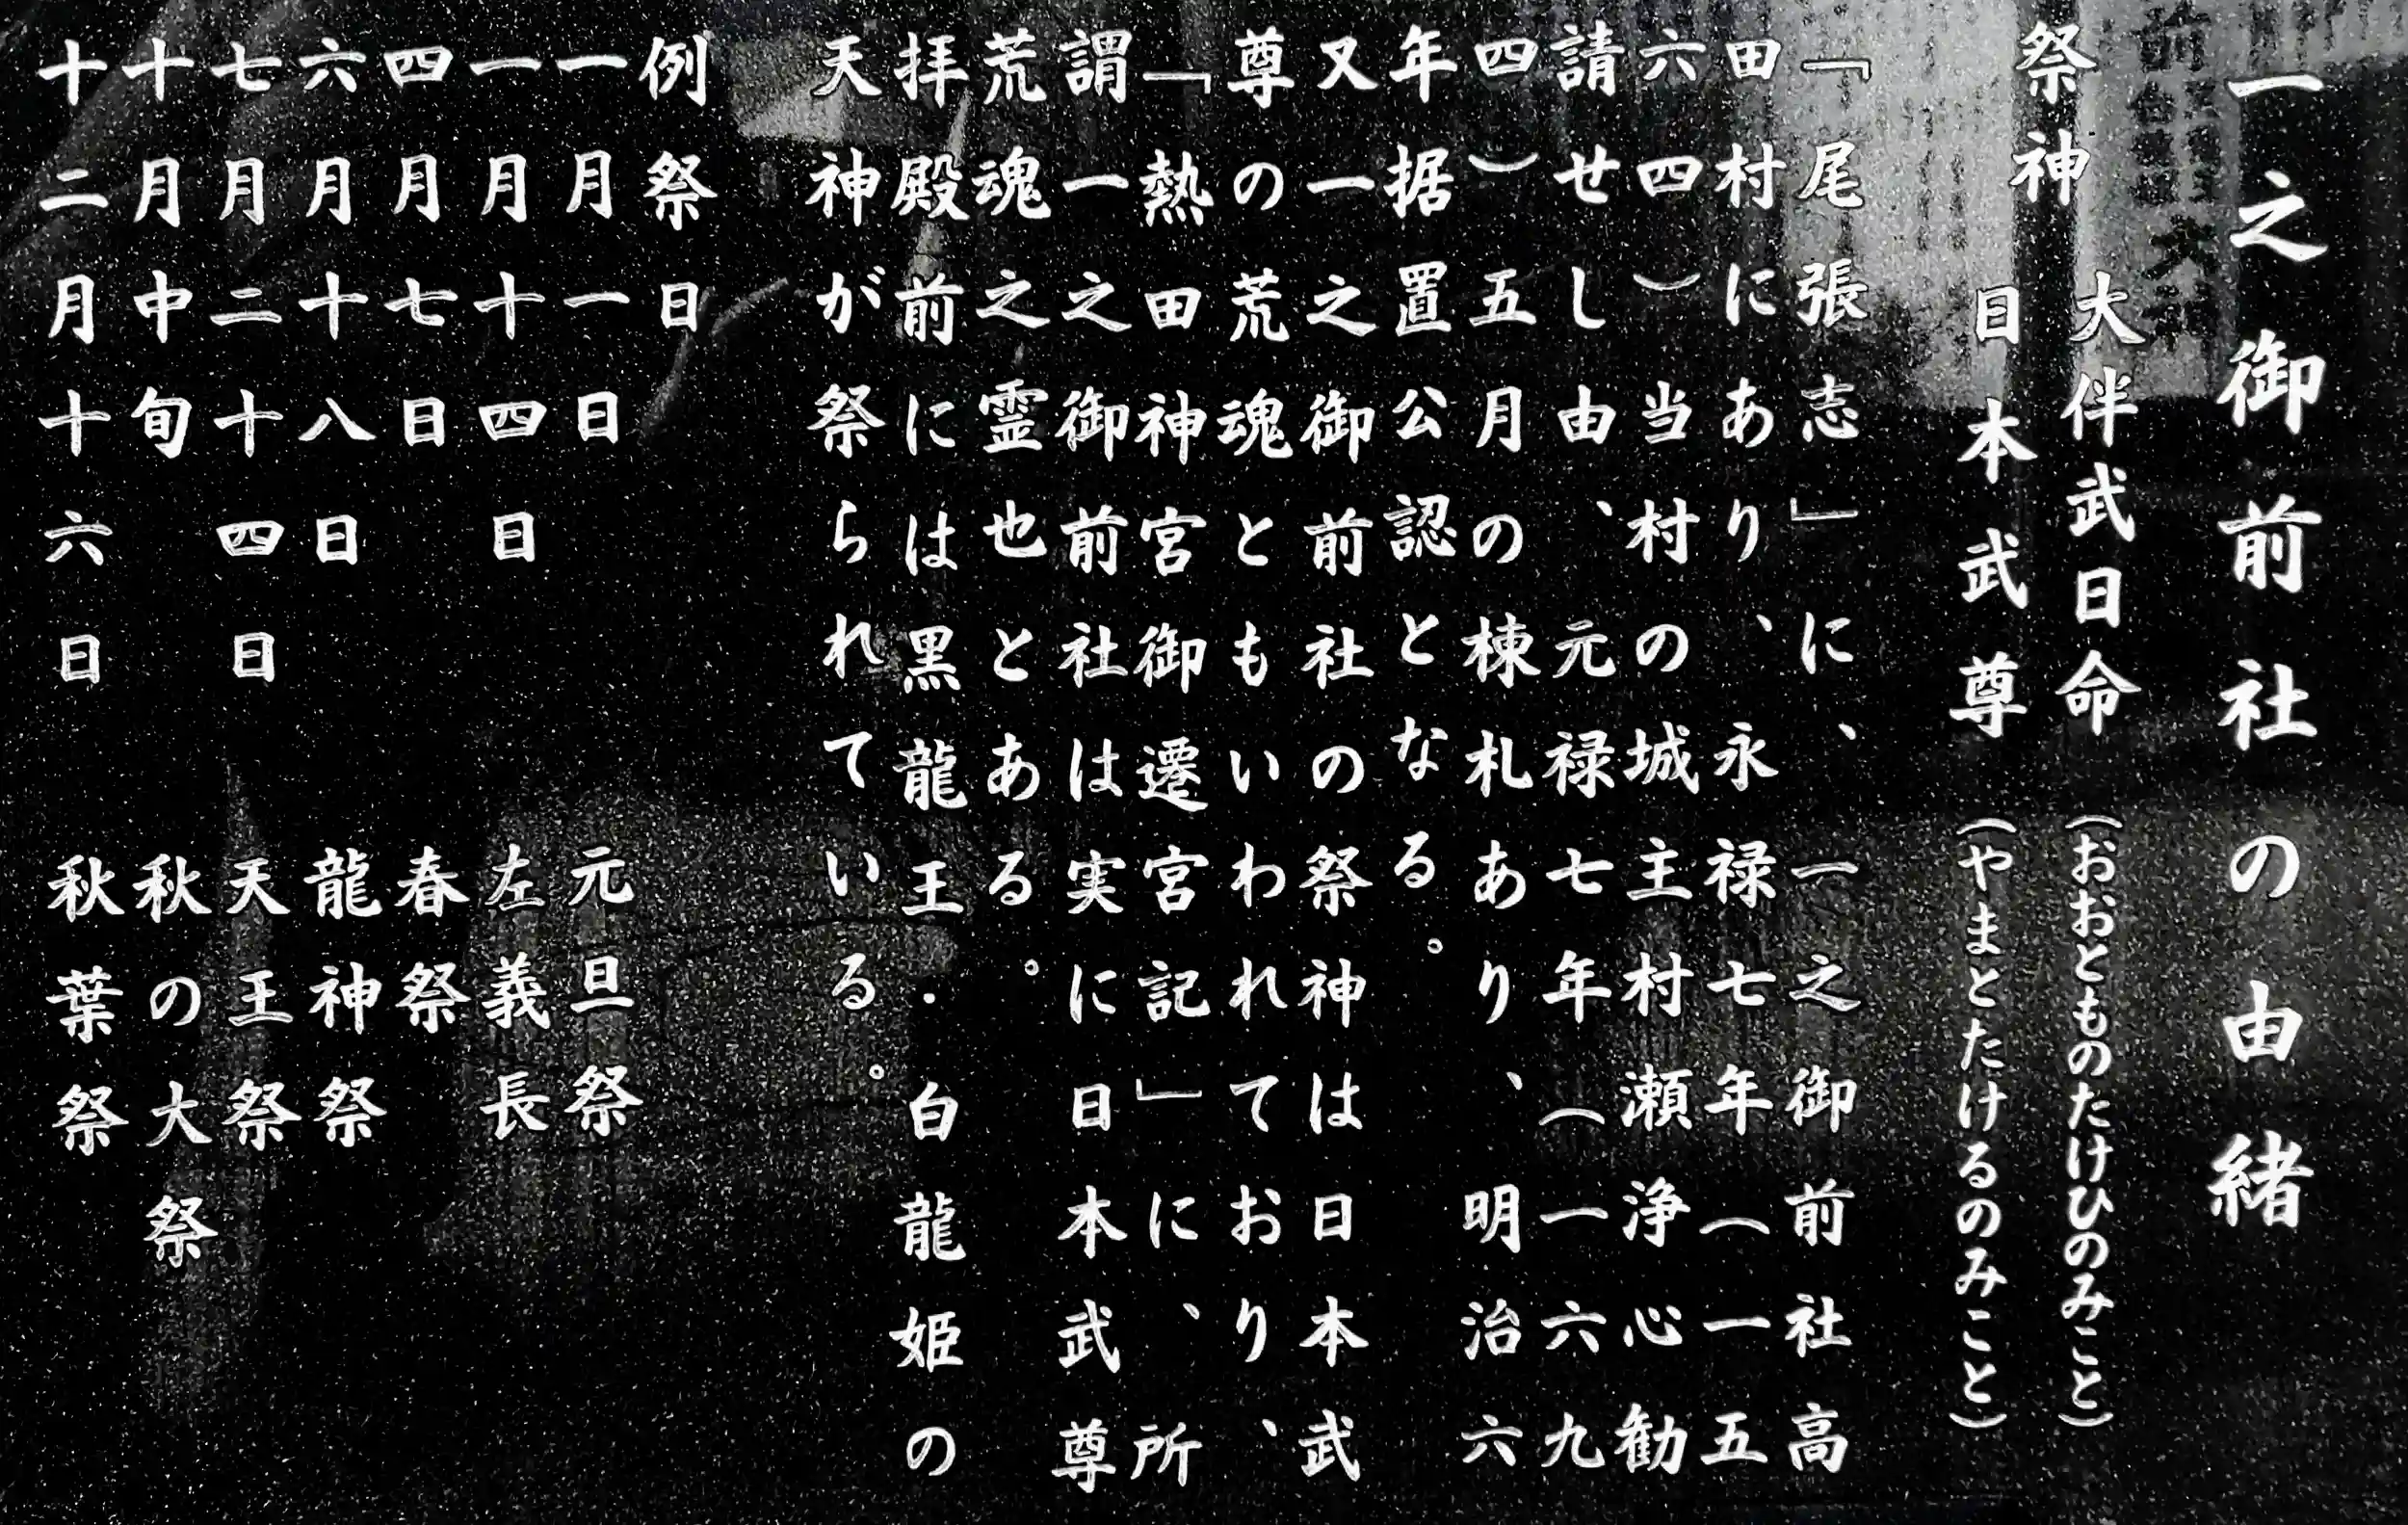 一之御前社の由緒
祭神
大伴武日命（おおとものたけひのみこと）
日本武尊（やまとたけるのみこと）
「尾張志」に、一之御前社高
田村にあり、永禄七年（一五
六四）当村の城主村瀬浄心勧
請せし由、元禄七年（一六九
四）五月の棟札あり、明治六
年据置公認となる。
又一之御前社の祭神は日本武
尊の荒魂ともいわれており、
「熱田神宮御遷宮記」に、所
謂一之御前社は実に日本武尊
荒魂之霊也とある。
拝殿前には黒龍王・白龍姫の
天神が祭られている。
例祭日
一月一日 元旦祭
一月十四日 左義長
四月七日 春祭
六月十八日 龍神祭
七月二十四日 天王祭
十月中旬 秋の大祭
十二月十六日 秋葉祭